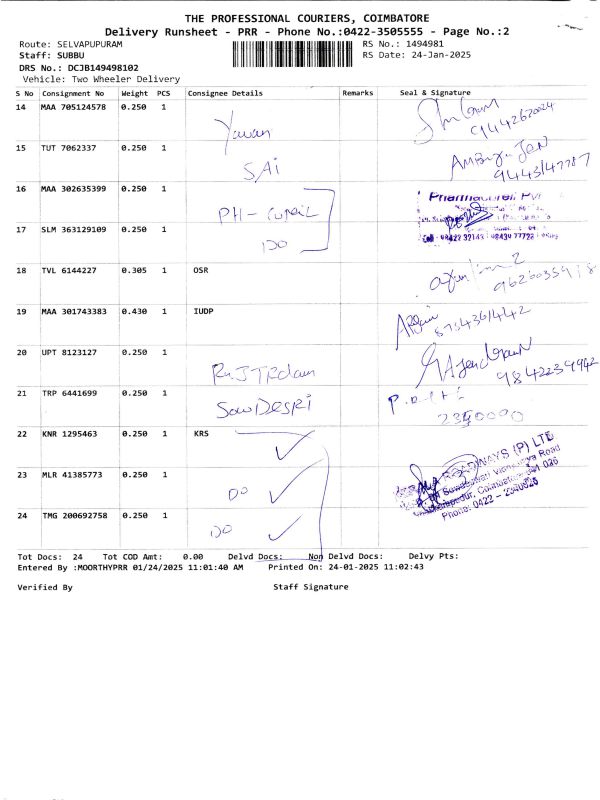 THE PROFESSIONAL COURIERS, COIMBATORE
Delivery Runsheet - PRR - Phone No.:0422-3505555 - Page No.:2
Route: SELVAPUPURAM RS No.: 1494981
Staff: SUBBU RS Date: 24-Jan-2025
DRS No.: DCJB149498102
Vehicle: Two Wheeler Delivery
S No Consignment No Weight PCS Consignee Details Remarks Seal & Signature
14 MAA 705124578 0.250 1
15 TUT 7062337 0.250 1 SAi
16 MAA 302635399 0.250 1
17 SLM 363129109 0.250 1 DO
18 TVL 6144227 0.305 1 OSR
19 MAA 301743383 0.430 1 IUDP
20 UPT 8123127 0.250 1 9842239942
21 TRP 6441699 0.250 1
22 KNR 1295463 0.250 1 KRS
23 MLR 41385773 0.250 1 DO
24 TMG 200692758 0.250 1 DO
ROADWAYS (P) LTD
Road
Coimbatore - 641 026
Phone: 0422 - 2340525
Tot Docs: 24 Tot COD Amt: 0.00 Delvd Docs: Non Delvd Docs: Delvy Pts:
Entered By :MOORTHYPRR 01/24/2025 11:01:40 AM Printed On: 24-01-2025 11:02:43
Verified By Staff Signature